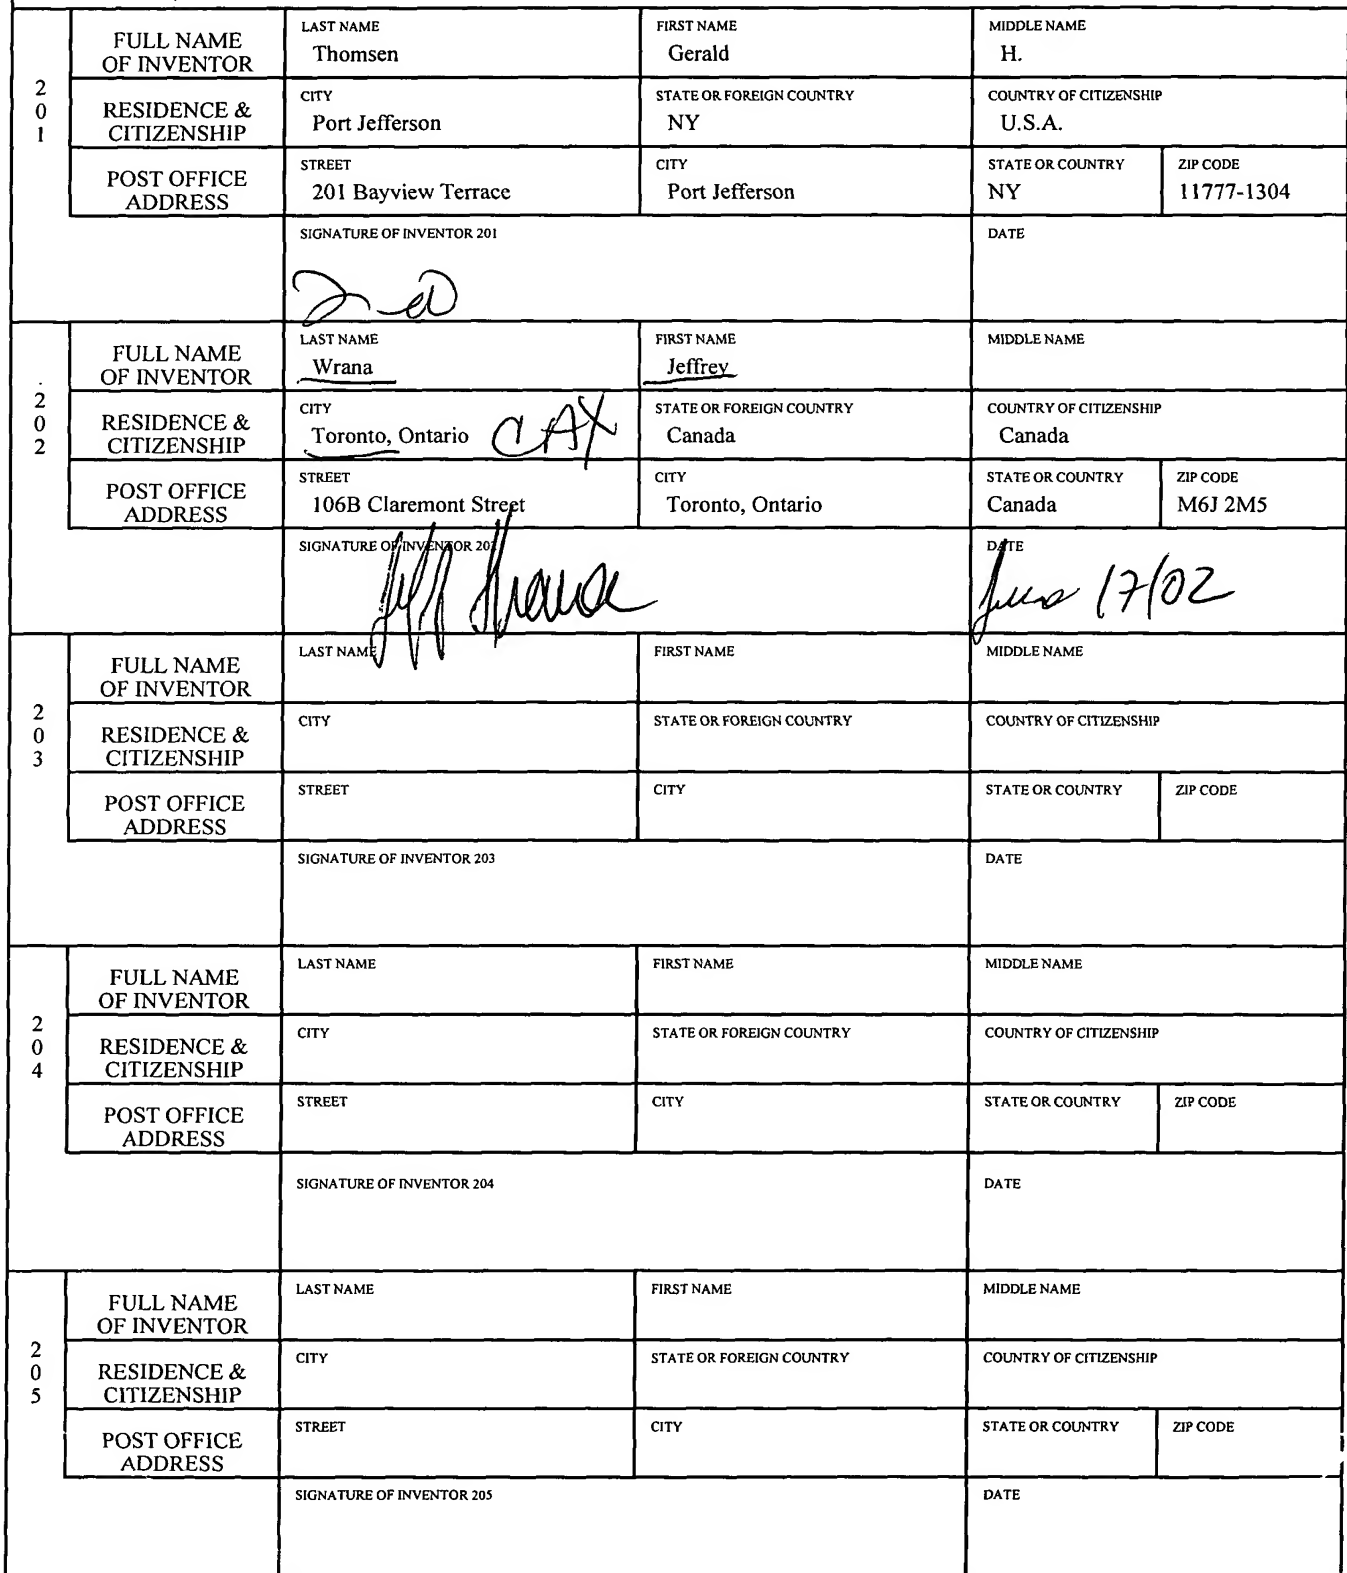 201
FULL NAME OF INVENTOR
LAST NAME Thomsen
FIRST NAME Gerald
MIDDLE NAME H.
RESIDENCE & CITIZENSHIP
CITY Port Jefferson
STATE OR FOREIGN COUNTRY NY
COUNTRY OF CITIZENSHIP U.S.A.
POST OFFICE ADDRESS
STREET 201 Bayview Terrace
CITY Port Jefferson
STATE OR COUNTRY NY
ZIP CODE 11777-1304
SIGNATURE OF INVENTOR 201
DATE
202
FULL NAME OF INVENTOR
LAST NAME Wrana
FIRST NAME Jeffrey
MIDDLE NAME
RESIDENCE & CITIZENSHIP
CITY Toronto, Ontario CAX
STATE OR FOREIGN COUNTRY Canada
COUNTRY OF CITIZENSHIP Canada
POST OFFICE ADDRESS
STREET 106B Claremont Street
CITY Toronto, Ontario
STATE OR COUNTRY Canada
ZIP CODE M6J 2M5
SIGNATURE OF INVENTOR 202 Jeff Wrana
DATE 17/02
203
FULL NAME OF INVENTOR
LAST NAME
FIRST NAME
MIDDLE NAME
RESIDENCE & CITIZENSHIP
CITY
STATE OR FOREIGN COUNTRY
COUNTRY OF CITIZENSHIP
POST OFFICE ADDRESS
STREET
CITY
STATE OR COUNTRY
ZIP CODE
SIGNATURE OF INVENTOR 203
DATE
204
FULL NAME OF INVENTOR
LAST NAME
FIRST NAME
MIDDLE NAME
RESIDENCE & CITIZENSHIP
CITY
STATE OR FOREIGN COUNTRY
COUNTRY OF CITIZENSHIP
POST OFFICE ADDRESS
STREET
CITY
STATE OR COUNTRY
ZIP CODE
SIGNATURE OF INVENTOR 204
DATE
205
FULL NAME OF INVENTOR
LAST NAME
FIRST NAME
MIDDLE NAME
RESIDENCE & CITIZENSHIP
CITY
STATE OR FOREIGN COUNTRY
COUNTRY OF CITIZENSHIP
POST OFFICE ADDRESS
STREET
CITY
STATE OR COUNTRY
ZIP CODE
SIGNATURE OF INVENTOR 205
DATE